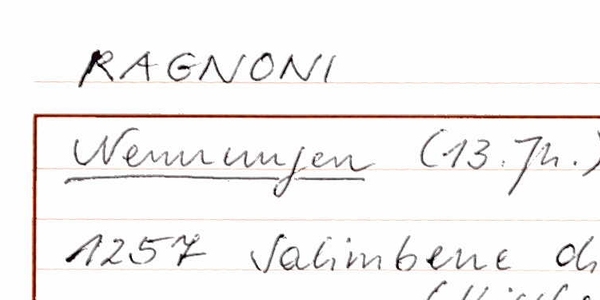 RAGNONI
Nennungen (13. Jh.)
1257 Salimbene